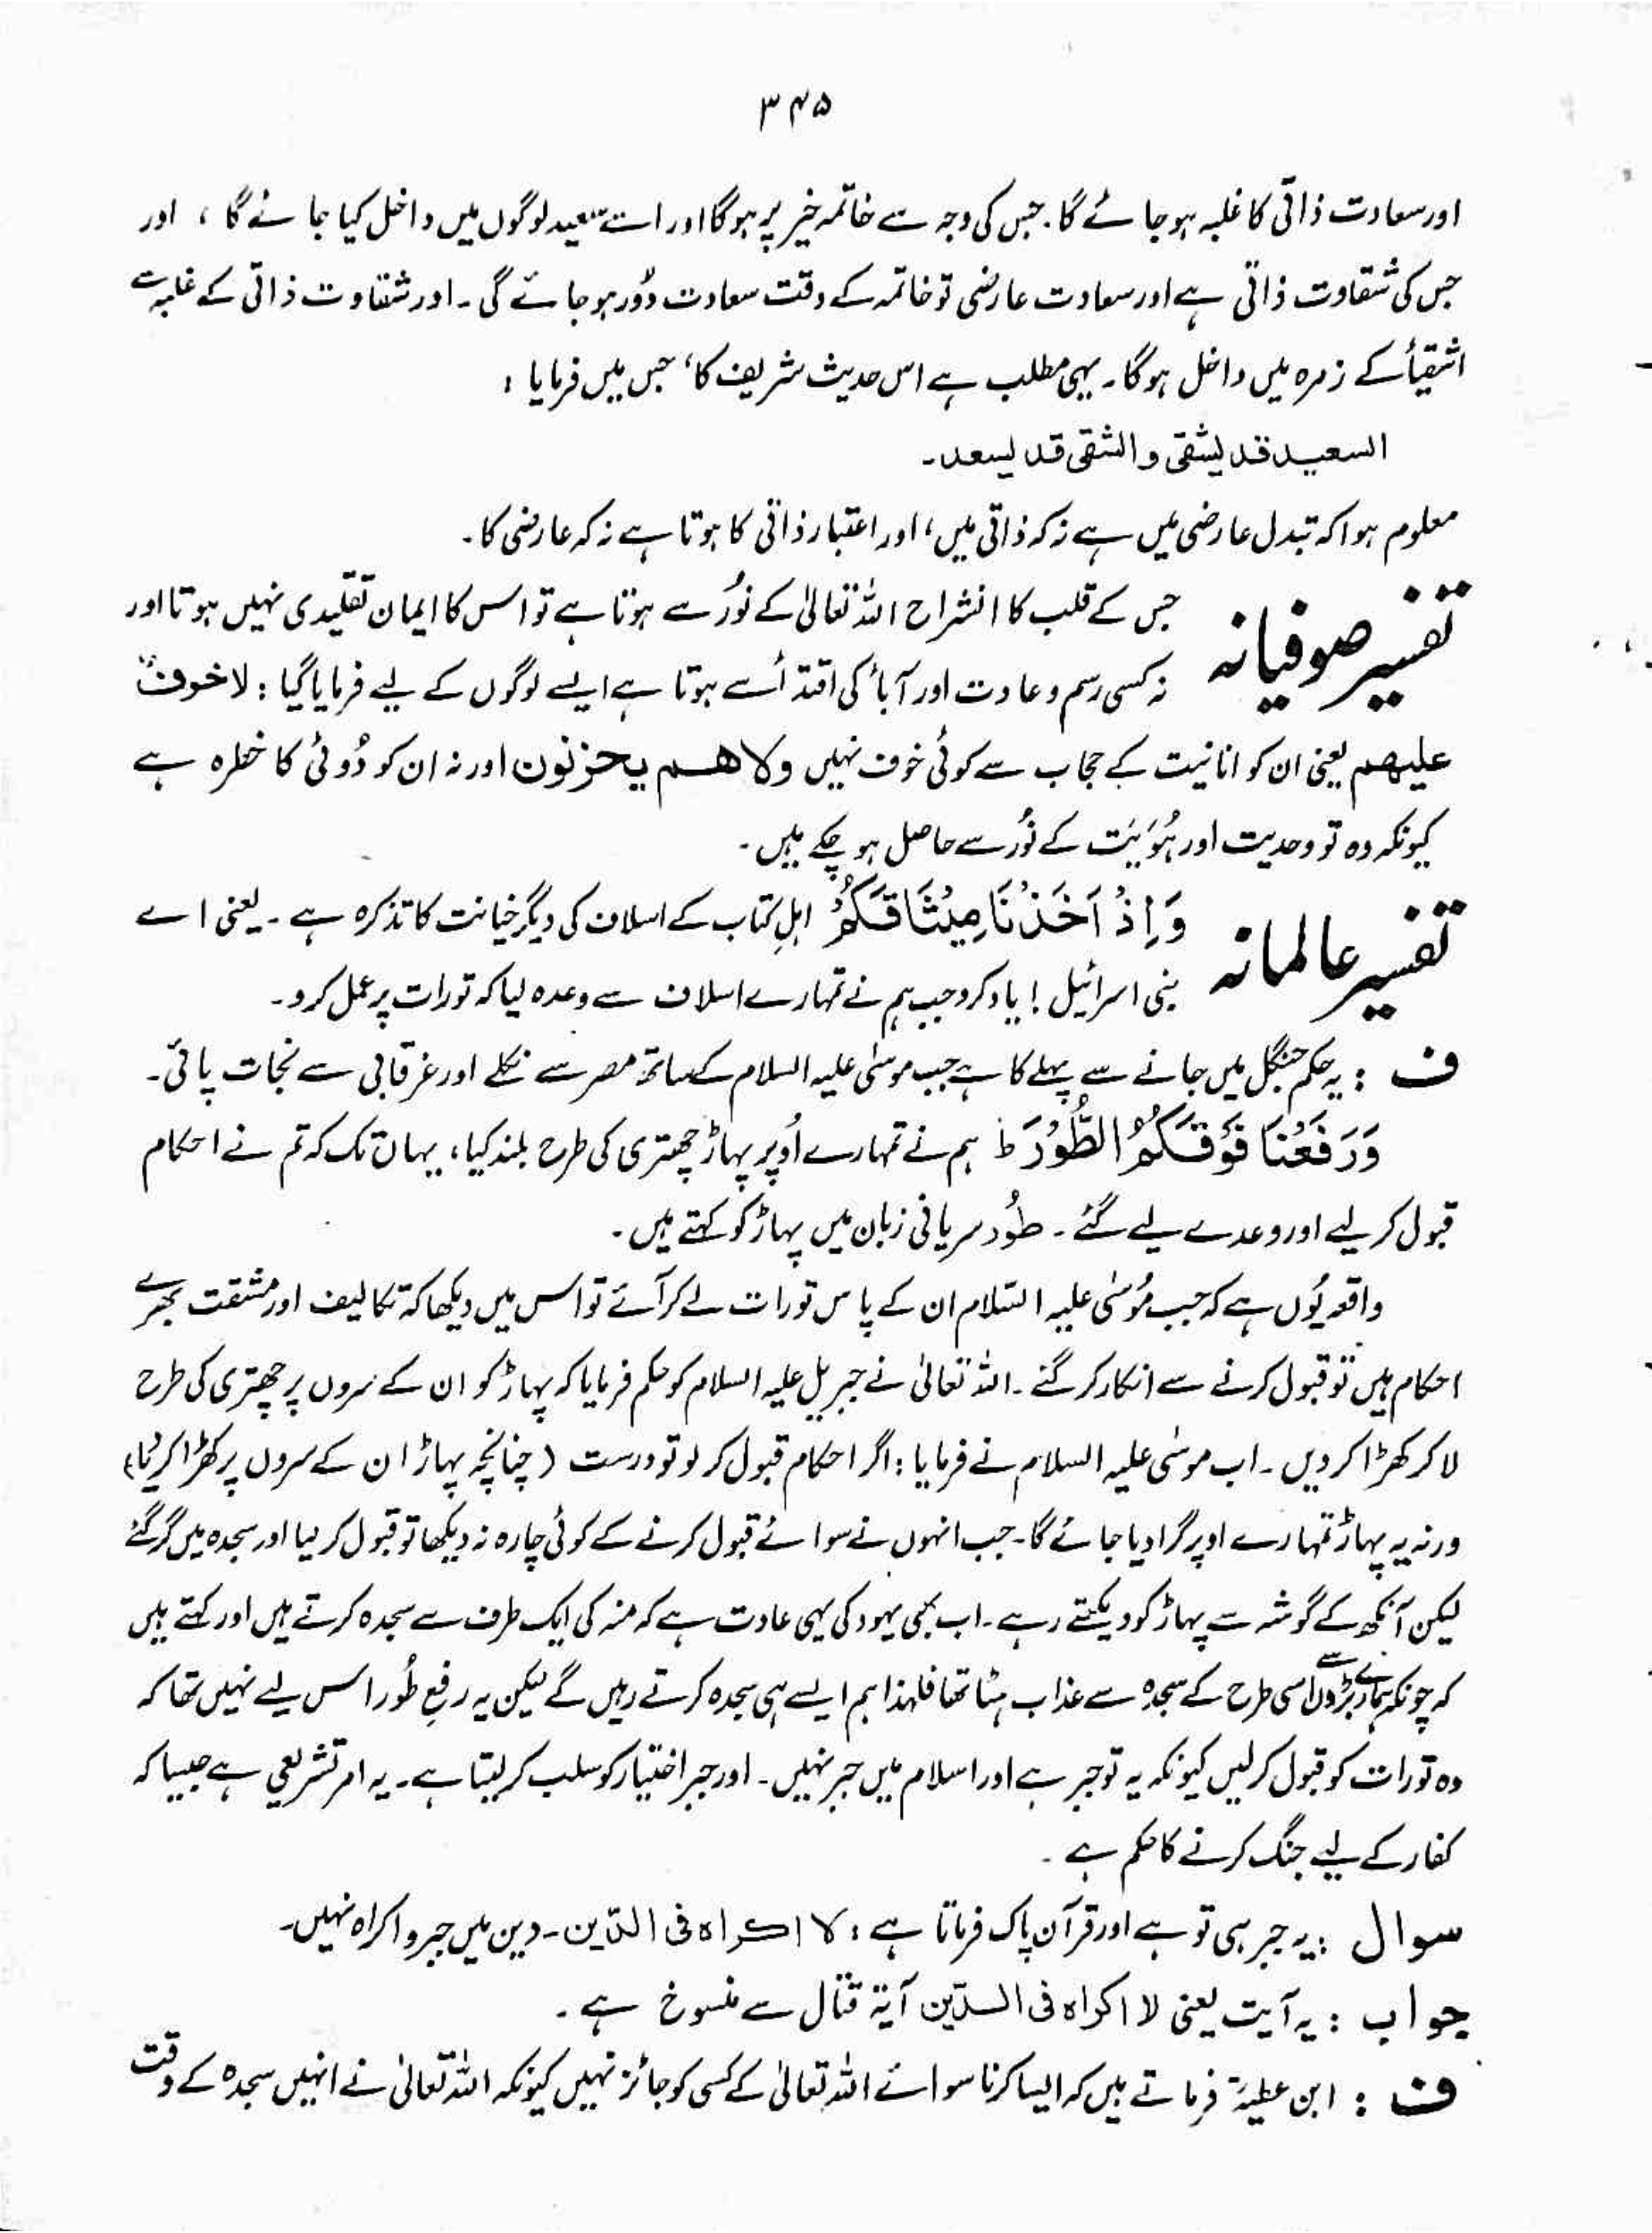 ۳۴۵
اور سعادت ذاتی کا غلبہ ہو جائے گا۔ جس کی وجہ سے خاتمہ خیر پر ہوگا اور اسے سعید لوگوں میں داخل کیا جائے گا ، اور
جس کی شقاوت ذاتی ہے اور سعادت عارضی تو خاتمہ کے وقت سعادت دُور ہو جائے گی ۔ اور شقاوت ذاتی کے غلبہ سے
اشقیأ کے زمرہ میں داخل ہوگا ۔ یہی مطلب ہے اس حدیث شریف کا، جس میں فرمایا :
السعید قد یشقی و الشقی قد یسعد۔
معلوم ہوا کہ تبدل عارضی میں ہے نہ کہ ذاتی میں ، اور اعتبار ذاتی کا ہوتا ہے نہ کہ عارضی کا ۔
تفسیر صوفیانہ جس کے قلب کا انشراح اللہ تعالیٰ کے نُور سے ہوتا ہے تو اس کا ایمان تقلیدی نہیں ہوتا اور
نہ کسی رسم و عادت اور آبأ کی اقتدأ سے ہوتا ہے ایسے لوگوں کے لیے فرمایا گیا : لا خوفٌ
علیھم یعنی ان کو انانیت کے حجاب سے کوئی خوف نہیں ولا ھم یحزنون اور نہ ان کو دُوئی کا خطرہ ہے
کیونکہ وہ تو وحدیت اور ہُوَیَت کے نُور سے حاصل ہو چکے ہیں ۔
تفسیر عالمانہ وَ اِذْ اَخَذْنَا مِیْثَاقَکُمْ اہلِ کتاب کے اسلاف کی دیگر خیانت کا تذکرہ ہے ۔ یعنی اے
بنی اسرائیل ! یاد کرو جب ہم نے تمہارے اسلاف سے وعدہ لیا کہ تورات پر عمل کرو ۔
ف : یہ حکم جنگل میں جانے سے پہلے کا ہے جب موسٰی علیہ السلام کے ساتھ مصر سے نکلے اور غرقابی سے نجات پائی ۔
وَ رَفَعْنَا فَوْقَکُمُ الطُّوْرَ ط ہم نے تمہارے اُوپر پہاڑ چھتری کی طرح بلند کیا ، یہاں تک کہ تم نے احکام
قبول کر لیے اور وعدے لیے گئے ۔ طُور سریانی زبان میں پہاڑ کو کہتے ہیں ۔
واقعہ یُوں ہے کہ جب مُوسٰی علیہ السّلام ان کے پاس تورات لے کر آئے تو اس میں دیکھا کہ تکالیف اور مشقت بھرے
احکام ہیں تو قبول کرنے سے انکار کر گئے ۔ اللہ تعالیٰ نے جبریل علیہ السلام کو حکم فرمایا کہ پہاڑ کو ان کے سروں پر چھتری کی طرح
لا کر کھڑا کر دیں ۔ اب موسٰی علیہ السلام نے فرمایا : اگر احکام قبول کر لو تو درست ( چنانچہ پہاڑ ان کے سروں پر کھڑا کر لیا)
ورنہ یہ پہاڑ تمہارے اوپر گرا دیا جائے گا ۔ جب انہوں نے سوائے قبول کرنے کے کوئی چارہ نہ دیکھا تو قبول کر لیا اور سجدہ میں گر گئے
لیکن آنکھ کے گوشہ سے پہاڑ کو دیکھتے رہے ۔ اب بھی یہود کی یہی عادت ہے کہ منہ کی ایک طرف سے سجدہ کرتے ہیں اور کہتے ہیں
کہ چونکہ ہمارے بڑوں سے اسی طرح کے سجدہ سے عذاب ہٹا تھا فلہذا ہم ایسے ہی سجدہ کرتے رہیں گے لیکن یہ رفعِ طُور اس لیے نہیں تھا کہ
وہ تورات کو قبول کرلیں کیونکہ یہ تو جبر ہے اور اسلام میں جبر نہیں ۔ اور جبر اختیار کو سلب کر لیتا ہے ۔ یہ امر تشریعی ہے جیسا کہ
کفار کے لیے جنگ کرنے کا حکم ہے ۔
سوال : یہ جبر ہی تو ہے اور قرآن پاک فرماتا ہے : لا اکراہ فی الدّین ۔ دین میں جبر و اکراہ نہیں ۔
جواب : یہ آیت یعنی لا اکراہ فی الدّین آیۃ قتال سے منسوخ ہے ۔
ف : ابن عطیۃ فرماتے ہیں کہ ایسا کرنا سوائے اللہ تعالیٰ کے کسی کو جائز نہیں کیونکہ اللہ تعالیٰ نے انہیں سجدہ کے وقت